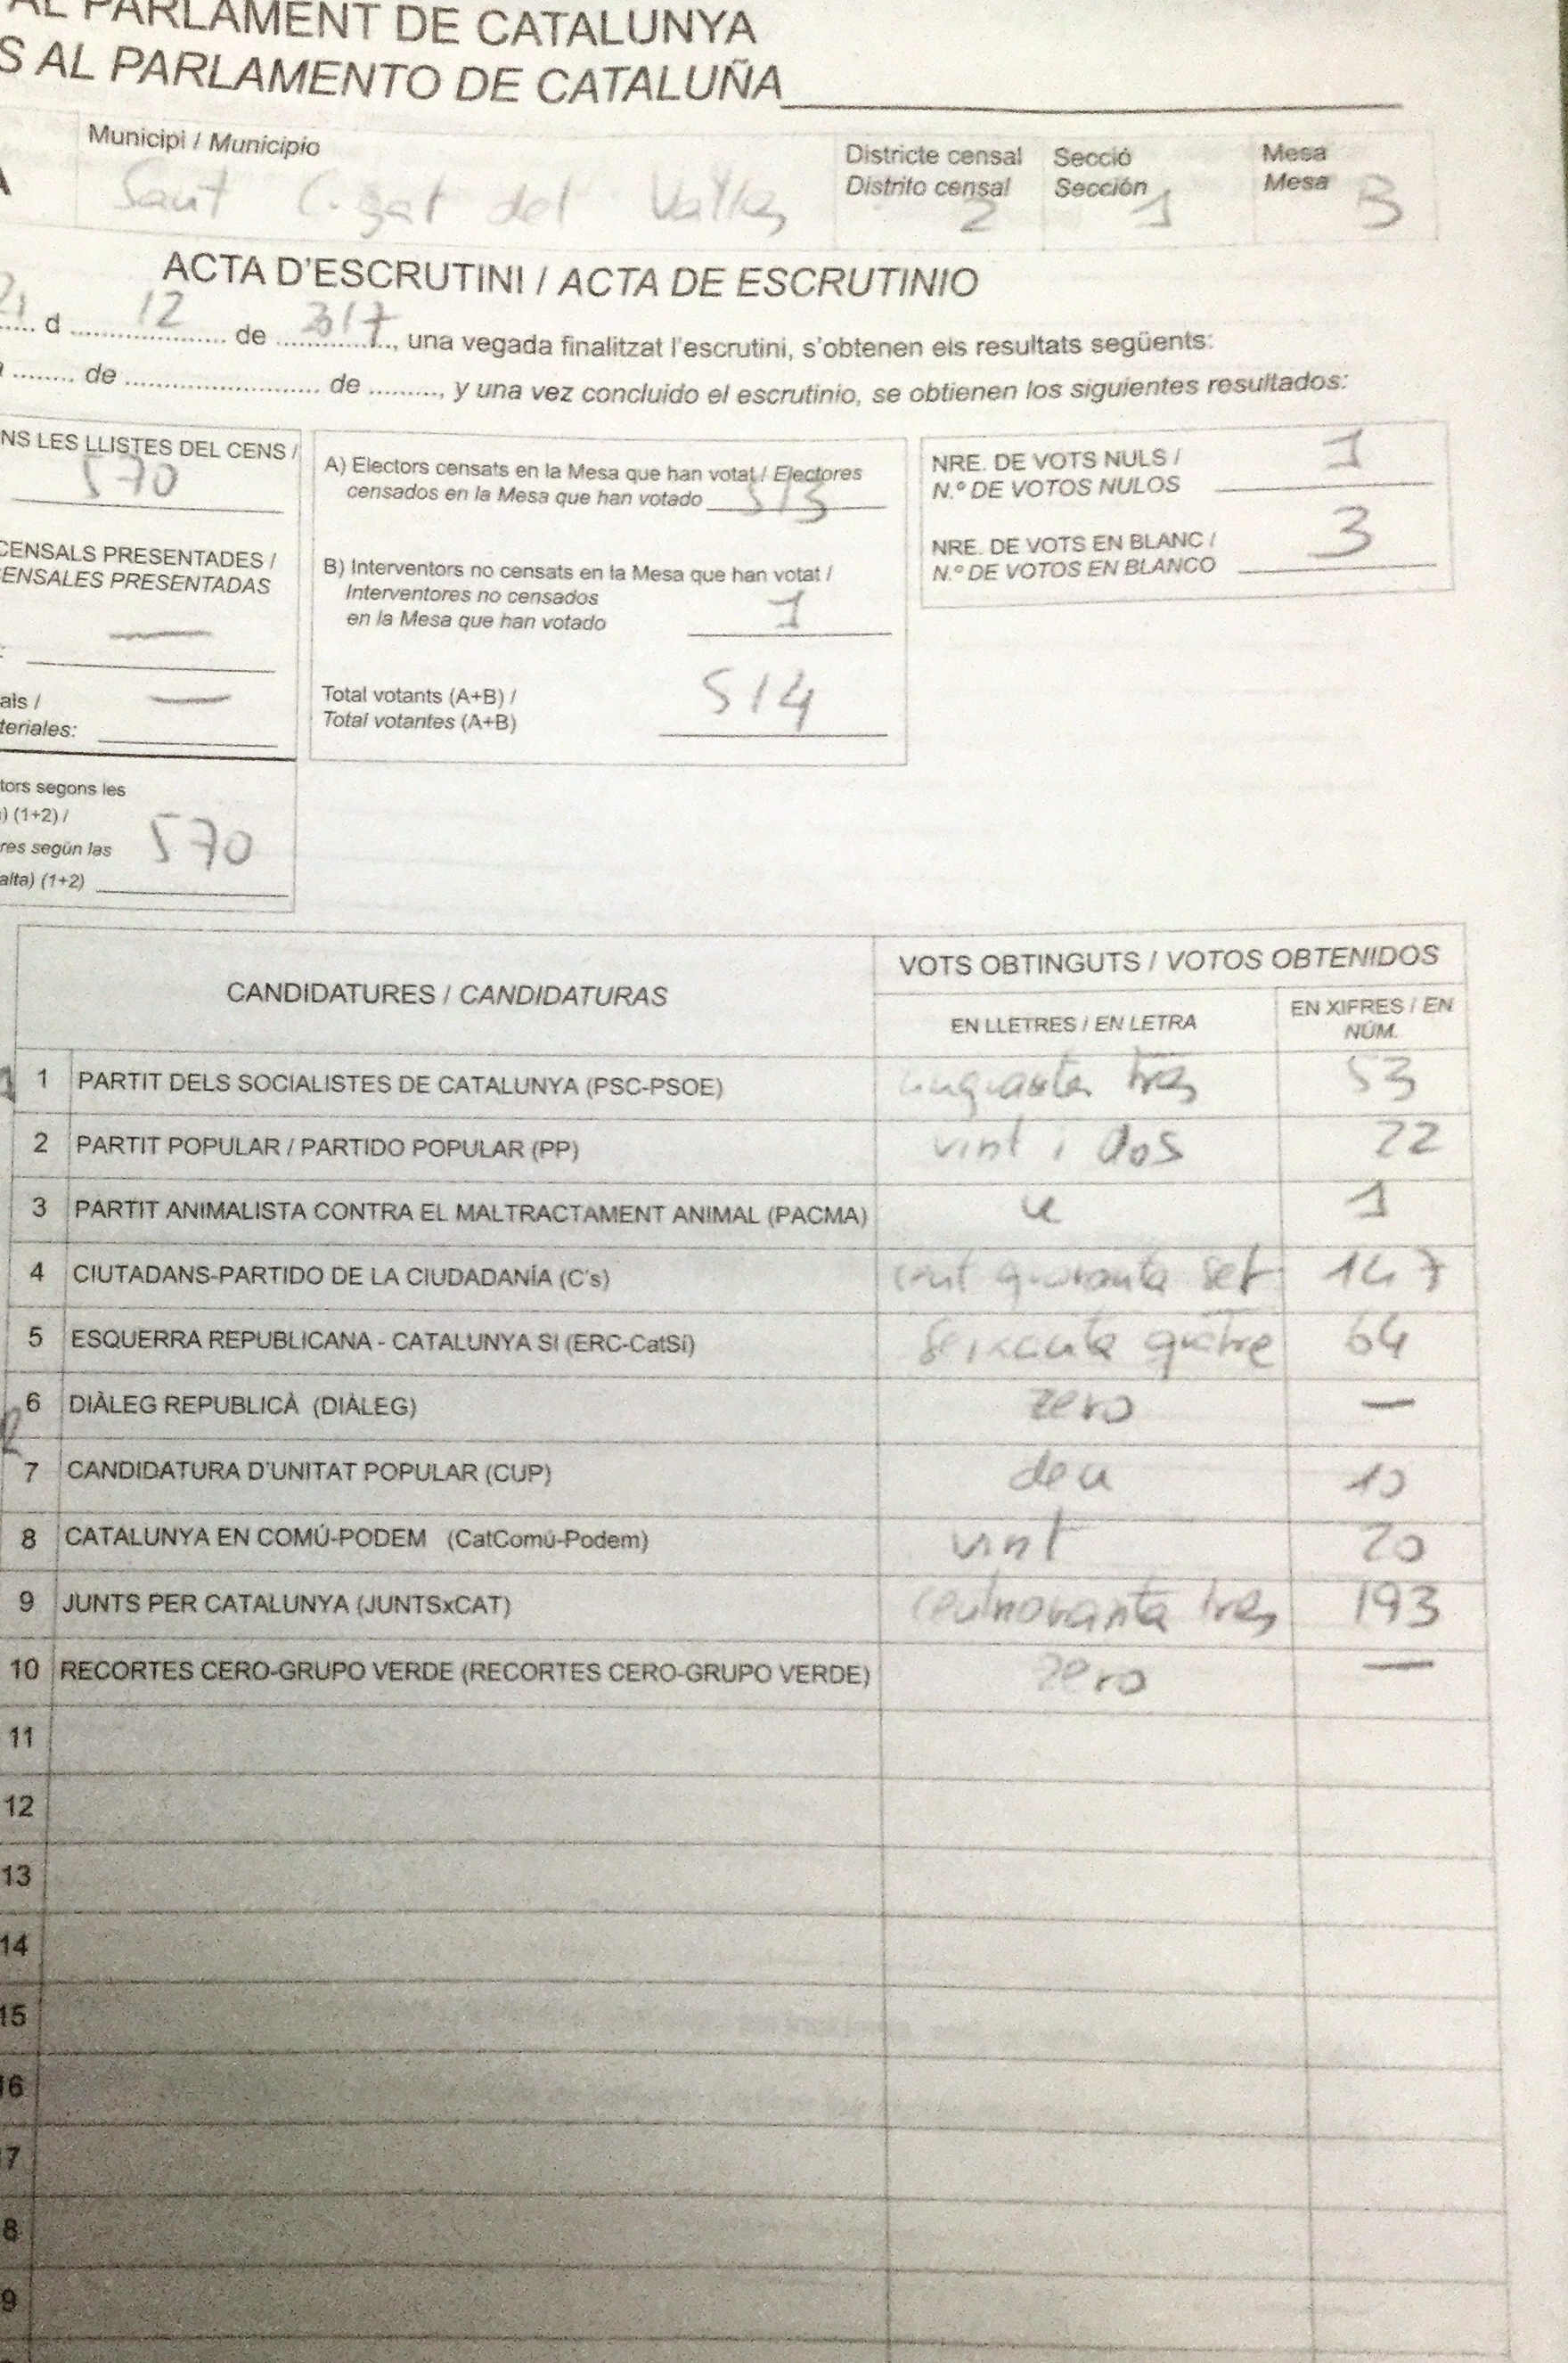 AL PARLAMENT DE CATALUNYA
S AL PARLAMENTO DE CATALUÑA
Municipi / Municipio
Sant Cugat del Vallès
Districte censal
Distrito censal
2
Secció
Sección
1
Mesa
Mesa
B
ACTA D'ESCRUTINI / ACTA DE ESCRUTINIO
21 d 12 de 2017, una vegada finalitzat l'escrutini, s'obtenen els resultats següents:
de de, y una vez concluido el escrutinio, se obtienen los siguientes resultados:
NS LES LLISTES DEL CENS /
570
CENSALS PRESENTADES /
CENSALES PRESENTADAS
—
als /
teriales:
—
tors segons les
) (1+2) /
res según las
alta) (1+2)
570
A) Electors censats en la Mesa que han votat / Electores
censados en la Mesa que han votado 513
B) Interventors no censats en la Mesa que han votat /
Interventores no censados
en la Mesa que han votado 1
Total votants (A+B) /
Total votantes (A+B)
514
NRE. DE VOTS NULS /
N.º DE VOTOS NULOS 1
NRE. DE VOTS EN BLANC /
N.º DE VOTOS EN BLANCO 3
CANDIDATURES / CANDIDATURAS
VOTS OBTINGUTS / VOTOS OBTENIDOS
EN LLETRES / EN LETRA
EN XIFRES / EN NÚM.
1 PARTIT DELS SOCIALISTES DE CATALUNYA (PSC-PSOE) cinquanta tres 53
2 PARTIT POPULAR / PARTIDO POPULAR (PP) vint i dos 22
3 PARTIT ANIMALISTA CONTRA EL MALTRACTAMENT ANIMAL (PACMA) u 1
4 CIUTADANS-PARTIDO DE LA CIUDADANÍA (C's) cent quaranta set 147
5 ESQUERRA REPUBLICANA - CATALUNYA SÍ (ERC-CatSí) seixanta quatre 64
6 DIÀLEG REPUBLICÀ (DIÀLEG) zero —
7 CANDIDATURA D'UNITAT POPULAR (CUP) deu 10
8 CATALUNYA EN COMÚ-PODEM (CatComú-Podem) vint 20
9 JUNTS PER CATALUNYA (JUNTSxCAT) cent noranta tres 193
10 RECORTES CERO-GRUPO VERDE (RECORTES CERO-GRUPO VERDE) zero —
11
12
13
14
15
16
17
8
9